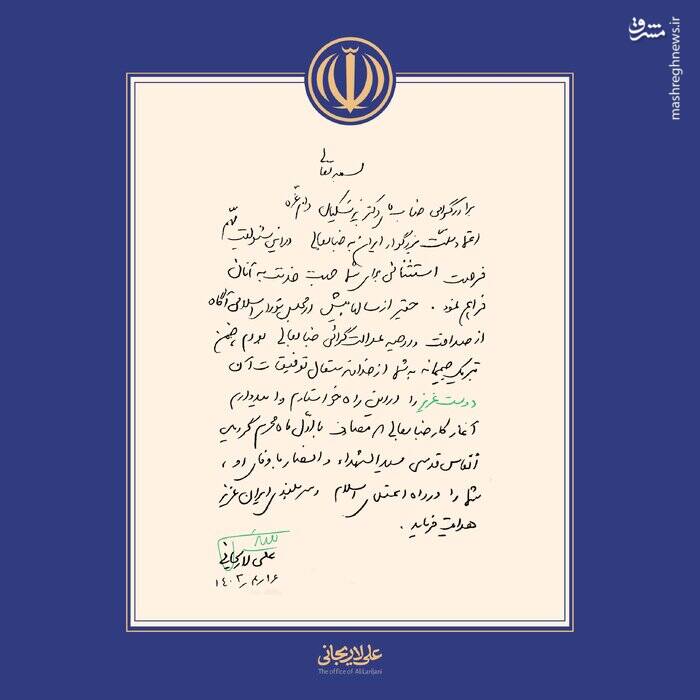 مشرق
mashreghnews.ir
بسمه تعالی
برادر گرامی جناب آقای دکتر پزشکیان دام عزه
اعتماد ملت بزرگوار ایران به جنابعالی در این مسئولیت مهم
فرصت استثنائی برای شما جهت خدمت به آنان
فراهم نمود . حقیر از سالها پیش در مجلس شورای اسلامی آگاه
از صداقت و روحیه عدالت گرائی جنابعالی بودم ، ضمن
تبریک صمیمانه به شما از خداوند متعال توفیقات آن
دوست عزیز را در این راه خواستارم و امیدوارم
آغاز کار جنابعالی که مصادف با اول ماه محرم گردیده
انفاس قدسی سیدالشهداء و انصار با وفای او ،
شما را در راه اعتلای اسلام و سربلندی ایران عزیز
هدایت فرماید .
علی لاریجانی
۱۴۰۳/۴/۱۶
علی لاریجانی
The office of Ali Larijani